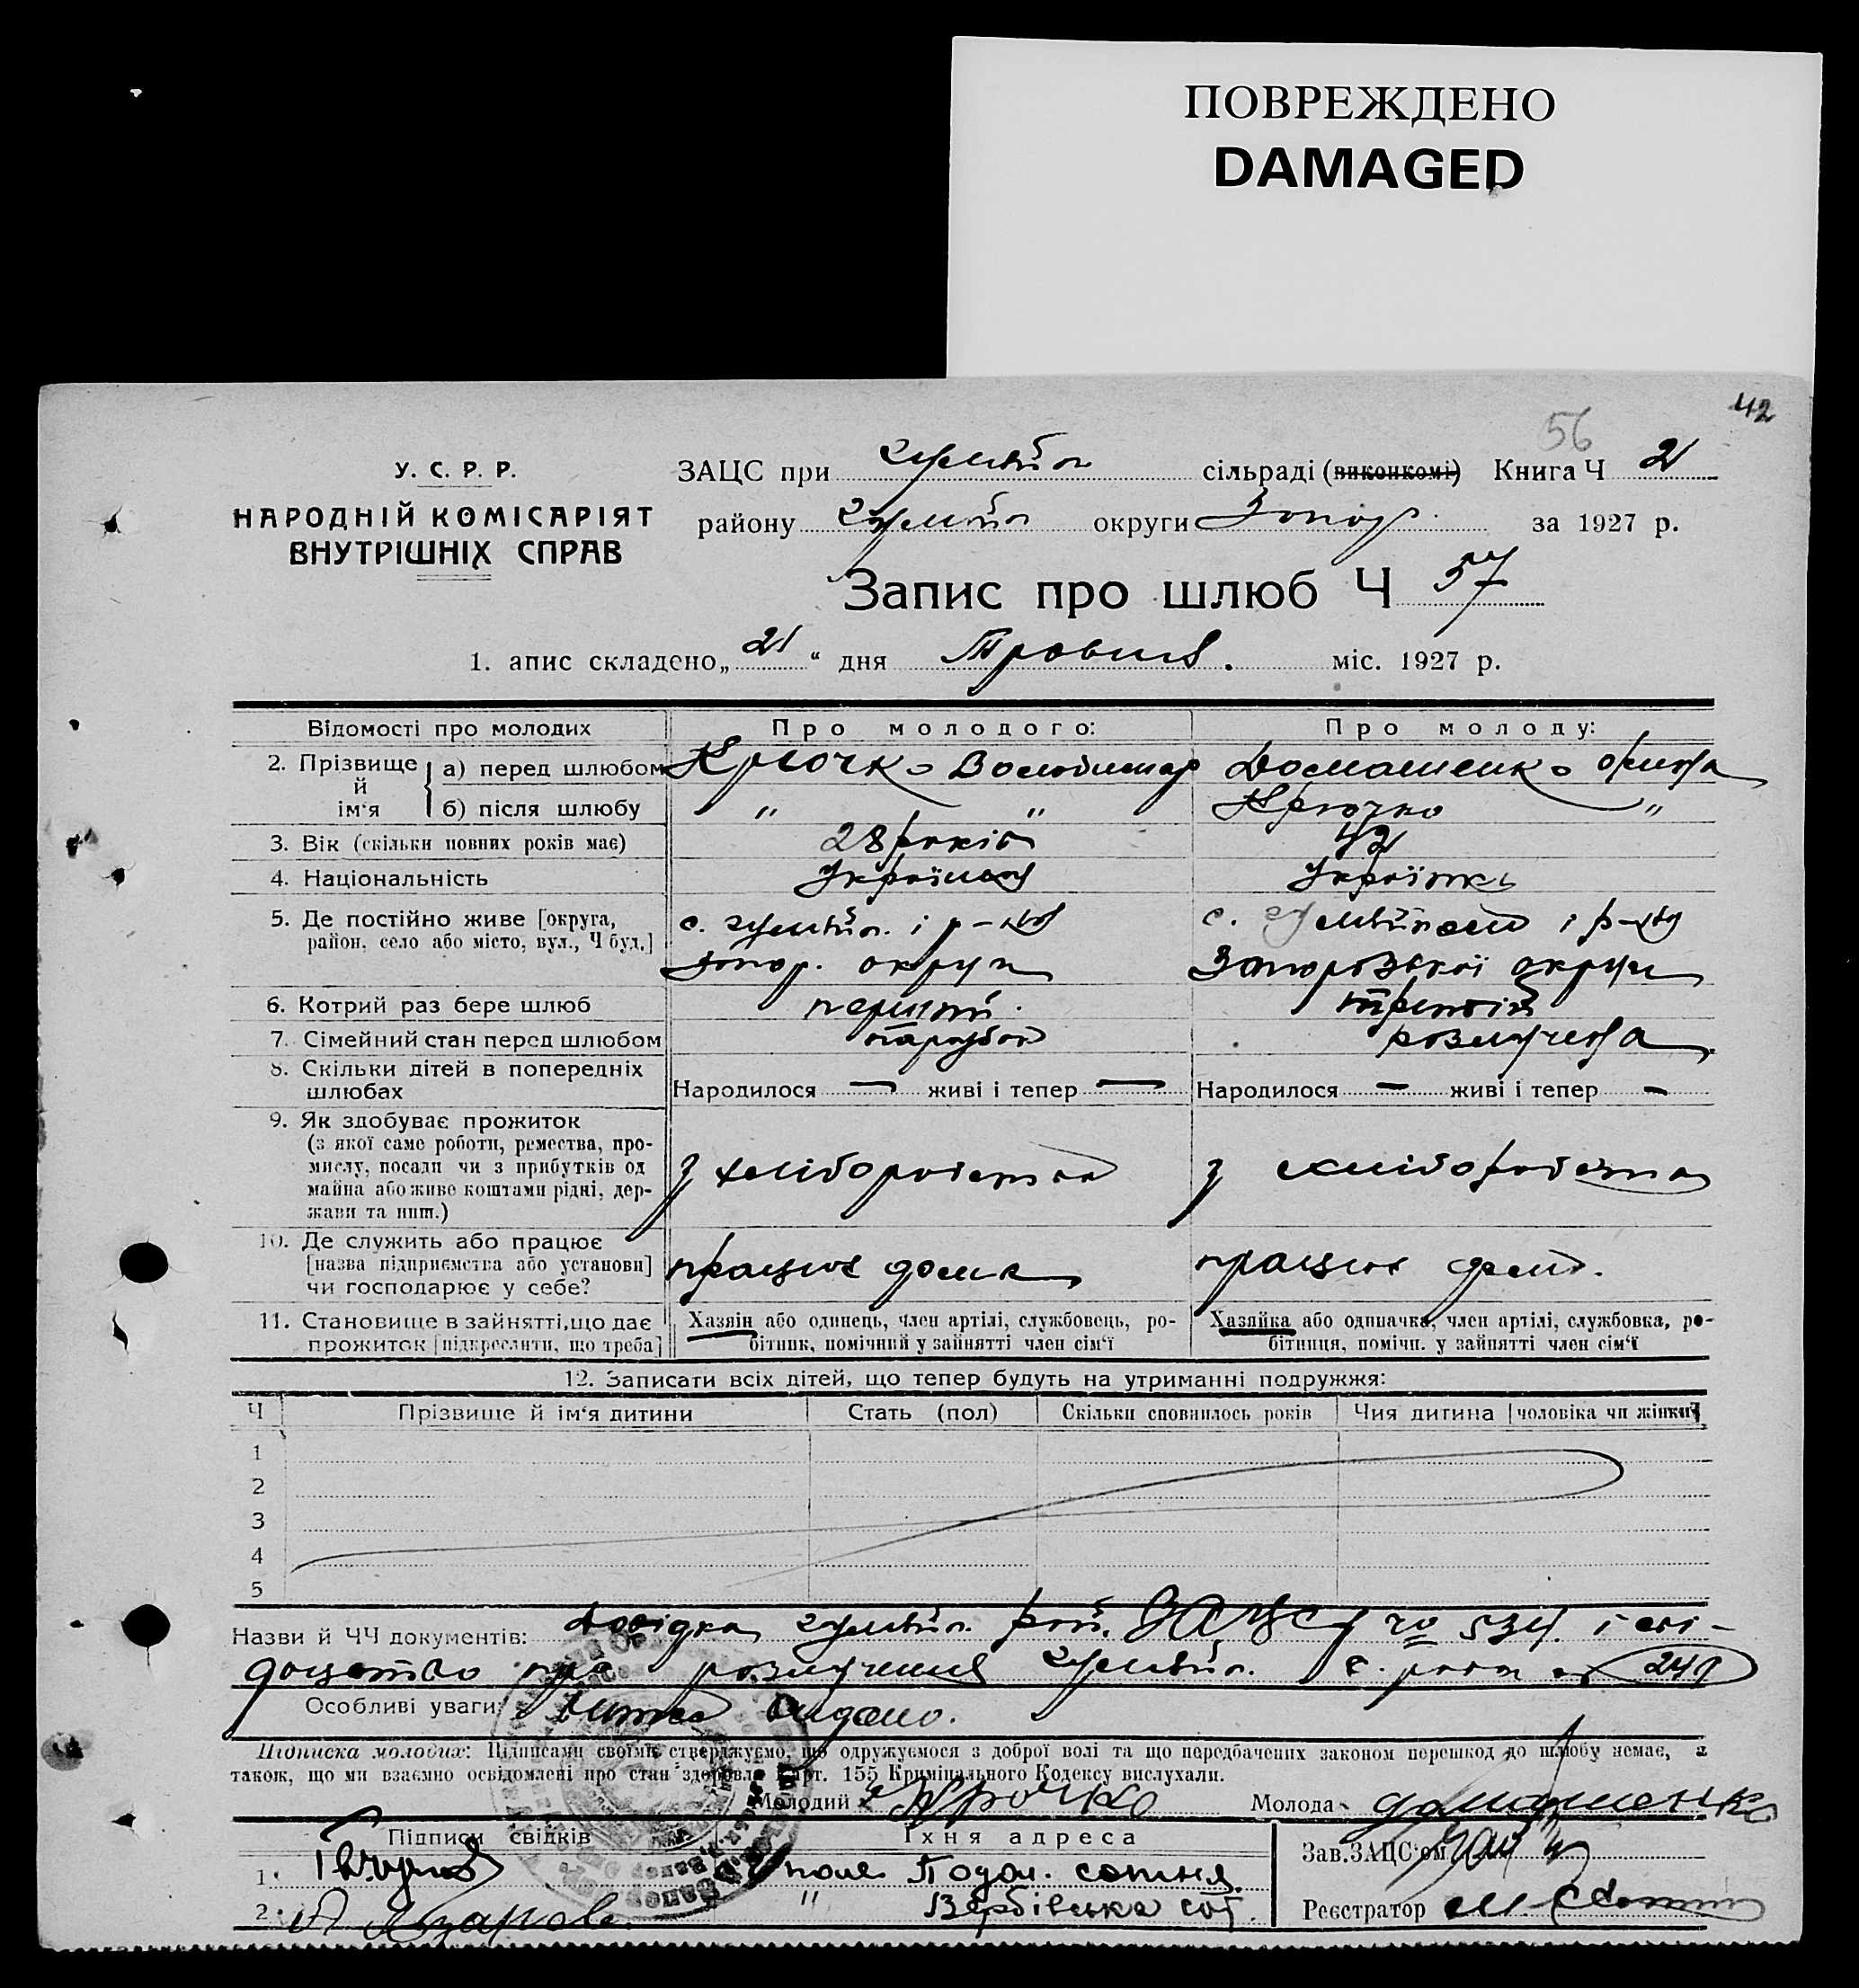 ПОВРЕЖДЕНО
DAMAGED
42
56
У. С. Р. Р.
НАРОДНІЙ КОМІСАРІЯТ
ВНУТРІШНІХ СПРАВ
ЗАЦС при сільраді (виконкомі) Книга Ч 2
району округи Запор. за 1927 р.
Запис про шлюб Ч 57
1. апис складено „21“ дня Травня. міс. 1927 р.
Відомості про молодих Про молодого: Про молоду:
2. Прізвище й ім‘я а) перед шлюбом Крючко Володимир Домашенко
б) після шлюбу " " Крючко "
3. Вік (скільки повних років має) 28 років 42
4. Національність Українець Українка
5. Де постійно живе [округа, район, село або місто, вул., Ч буд.] с. і р-ну с. і р-ну
Запор. округи Запорозької округи
6. Котрий раз бере шлюб перший третій
7. Сімейний стан перед шлюбом парубок розлучена
8. Скільки дітей в попередніх шлюбах Народилося — живі і тепер — Народилося — живі і тепер —
9. Як здобуває прожиток
(з якої саме роботи, ремества, про-
мислу, посади чи з прибутків од
майна або живе коштами рідні, дер-
жави та инш.) з хліборобства з хліборобства
10. Де служить або працює
[назва підприємства або установи]
чи господарює у себе? працює дома працює дома.
11. Становище в зайнятті, що дає
прожиток [підкреслити, що треба] Хазяін або одинець, член артілі, службовець, ро-
бітник, помічний у зайнятті член сім‘ї Хазяйка або одиначка, член артілі, службовка, ро-
бітниця, помічн. у зайнятті член сім‘ї
12. Записати всіх дітей, що тепер будуть на утриманні подружжя:
Ч Прізвище й ім‘я дитини Стать (пол) Скільки сповнилось років Чия дитина [чоловіка чи жінки]
1
2
3
4
5
Назви й ЧЧ документів: Довідка рай. ЗАЦСу 534 і сві-
доцтво про розлучення с. ради 241
Особливі уваги: видано.
Підписка молодих: Підписами своїми стверджуємо, що одружуємося з доброї волі та що передбачених законом перешкод до шлюбу немає, а
також, що ми взаємно освідомлені про стан здоровля і арт. 155 Кримінального Кодексу вислухали.
Молодий Крючко Молода Домашенко
Підписи свідків Їхня адреса Зав. ЗАЦС‘ом
1. поле Подол. сотня.
2. " Вербівська сот. Реєстратор